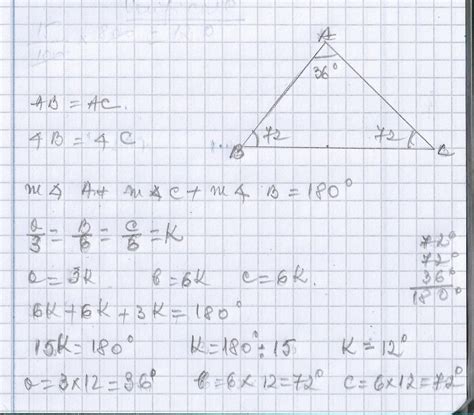 A
36°
AB = AC.
∢B = ∢C
B 72 72 C
m∢ A + m∢C + m∢ B = 180°
a/3 = B/6 = C/6 = K
72°
72°
36°
180°
a = 3K b = 6K c = 6K.
6K + 6K + 3K = 180°
15K = 180° K = 180° ÷ 15 K = 12°
a = 3×12 = 36° b = 6×12 = 72° c = 6×12 = 72°